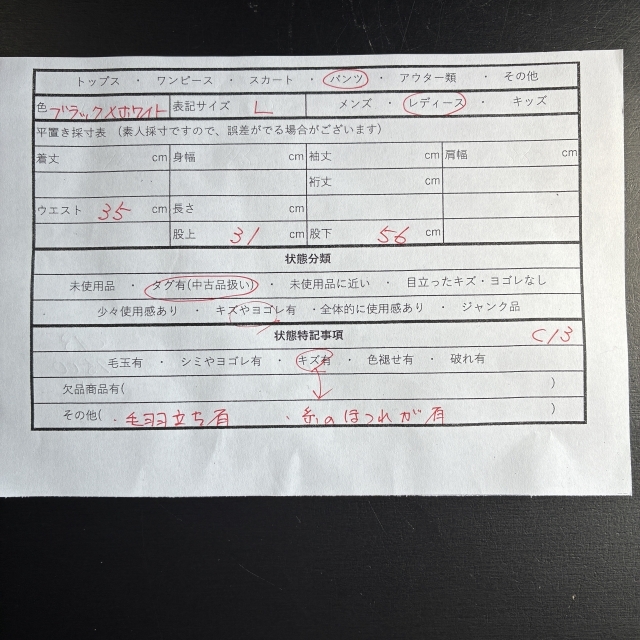 トップス ・ ワンピース ・ スカート ・ パンツ ・ アウター類 ・ その他
色 ブラック×ホワイト 表記サイズ L メンズ ・ レディース ・ キッズ
平置き採寸表 （素人採寸ですので、誤差がでる場合がございます）
着丈 cm 身幅 cm 袖丈 cm 肩幅 cm
裄丈 cm
ウエスト 35 cm 長さ cm
股上 31 cm 股下 56 cm
状態分類
未使用品 ・ タグ有(中古品扱い) ・ 未使用品に近い ・ 目立ったキズ・ヨゴレなし
少々使用感あり ・ キズやヨゴレ有 ・全体的に使用感あり ・ ジャンク品
状態特記事項 C13
毛玉有 ・ シミやヨゴレ有 ・ キズ有 ・ 色褪せ有 ・ 破れ有
欠品商品有( )
その他( ・毛羽立ち有 ・糸のほつれが有 )